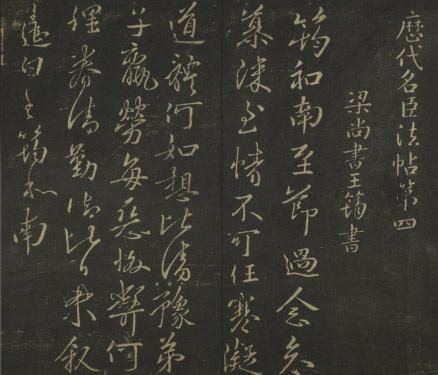 歷代名臣法帖第四
梁尚書王筠書
筠和南至節過念哀
慕深至情不可任寒凝
道體何如想比清豫弟
子羸勞每惡 弊何
理 清勤 比日 敘
遣白王筠和南